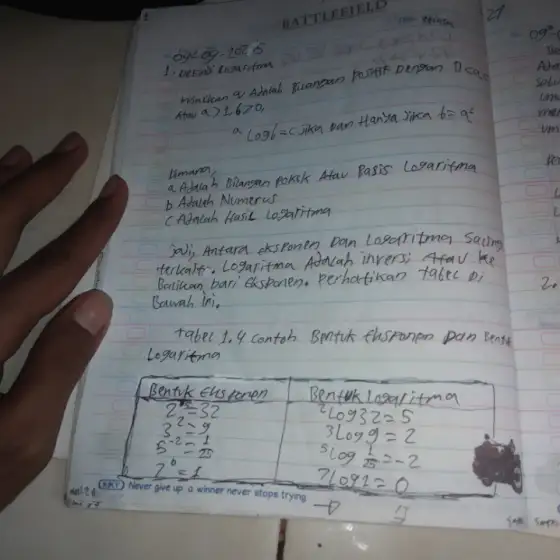 BATTLEFIELD
29
1. Definisi Logaritma
Misalkan a Adalah Bilangan Positif Dengan 0 < a
Atau a > 1, b > 0,
ᵃLog b = c Jika Dan Hanya Jika b = aᶜ
Dimana,
a Adalah Bilangan Pokok Atau Basis Logaritma
b Adalah Numerus
c Adalah Hasil Logaritma
Jadi, Antara eksponen Dan Logaritma Saling
terkait. Logaritma Adalah inversi Atau ke
Balikan Dari Eksponen. Perhatikan tabel Di
Bawah ini.
tabel 1.4 Contoh Bentuk Eksponen Dan Bentu
Logaritma
Bentuk Eksponen Bentuk Logaritma
2⁵ = 32 ²Log 32 = 5
3² = 9 ³Log 9 = 2
5⁻² = 1/25 ⁵Log 1/25 = -2
7⁰ = 1 ⁷Log 1 = 0
KKY Never give up a winner never stops trying